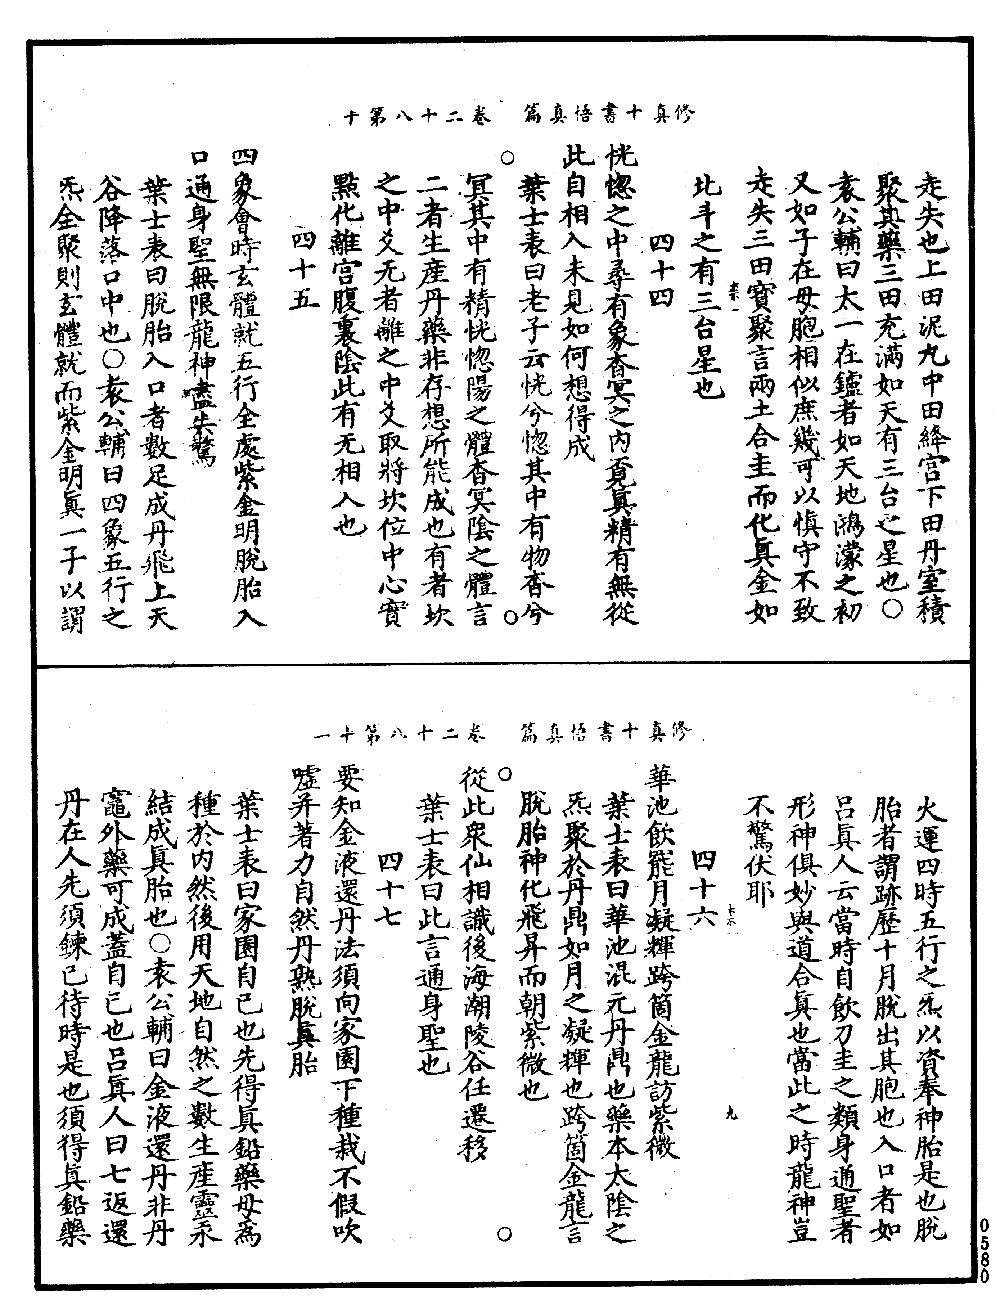 修真十書悟真篇　卷二十八第十
走失也上田泥丸中田絳宮下田丹室積
聚其藥三田充滿如天有三台之星也○
袁公輔曰太一在鑪者如天地鴻濛之初
又如子在母胞相似庶幾可以慎守不致
走失三田寶聚言兩土合圭而化眞金如
北斗之有三台星也
四十四
恍惚之中尋有象杳冥之內覓眞精有無從
此自相入未見如何想得成
葉士表曰老子云恍兮惚其中有物杳兮
冥其中有精恍惚陽之體杳冥陰之體言
二者生産丹藥非存想所能成也有者坎
之中爻无者離之中爻取將坎位中心實
點化離宮腹裏陰此有无相入也
四十五
四象會時玄體就五行全處紫金明脫胎入
口通身聖無限龍神盡失驚
葉士表曰脫胎入口者數足成丹飛上天
谷降落口中也○袁公輔曰四象五行之
炁金聚則玄體就而紫金明眞一子以謂
修真十書悟真篇　卷二十八第十一
火運四時五行之炁以資奉神胎是也脫
胎者謂跡歷十月脫出其胞也入口者如
呂眞人云當時自飲刀圭之類身通聖者
形神俱妙與道合眞也當此之時龍神豈
不驚伏耶
四十六
九
華池飲罷月凝輝跨箇金龍訪紫微
葉士表曰華池混元丹鼎也藥本太陰之
炁聚於丹鼎如月之凝輝也跨箇金龍言
脫胎神化飛昇而朝紫微也
從此衆仙相識後海潮陵谷任遷移
葉士表曰此言通身聖也
四十七
要知金液還丹法須向家園下種栽不假吹
嘘幷著力自然丹熟脫眞胎
葉士表曰家園自已也先得眞鉛藥母爲
種於內然後用天地自然之數生産靈汞
結成眞胎也○袁公輔曰金液還丹非丹
竈外藥可成蓋自已也呂眞人曰七返還
丹在人先須鍊已待時是也須得眞鉛藥
0580